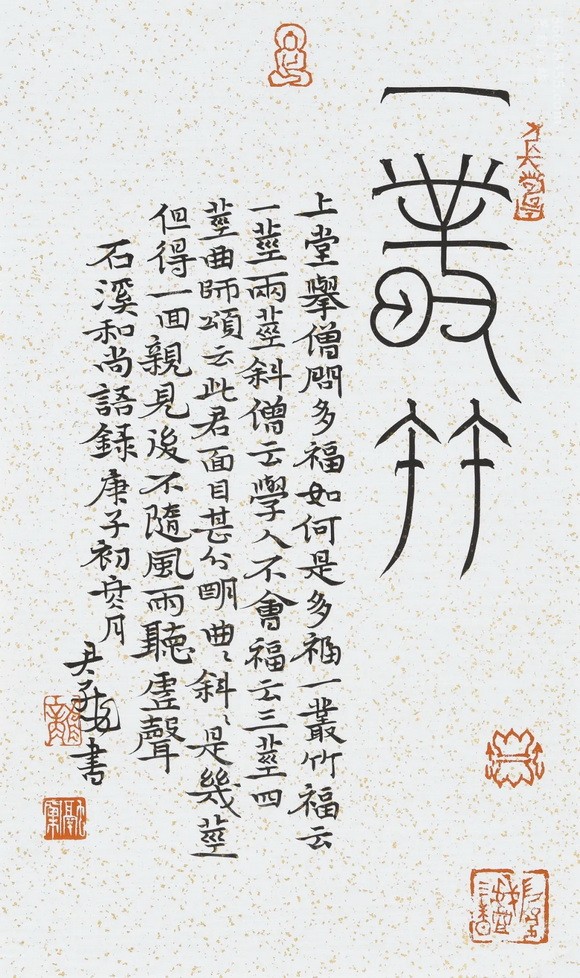 一叢竹
上堂舉僧問多福如何是多福一叢竹福云
一莖兩莖斜僧云學人不會福云三莖四
莖曲師頌云此君面目甚分明曲〻斜〻是幾莖
但得一回親見後不隨風雨聽虛聲
石溪和尚語録庚子初冬月
尹子龍書